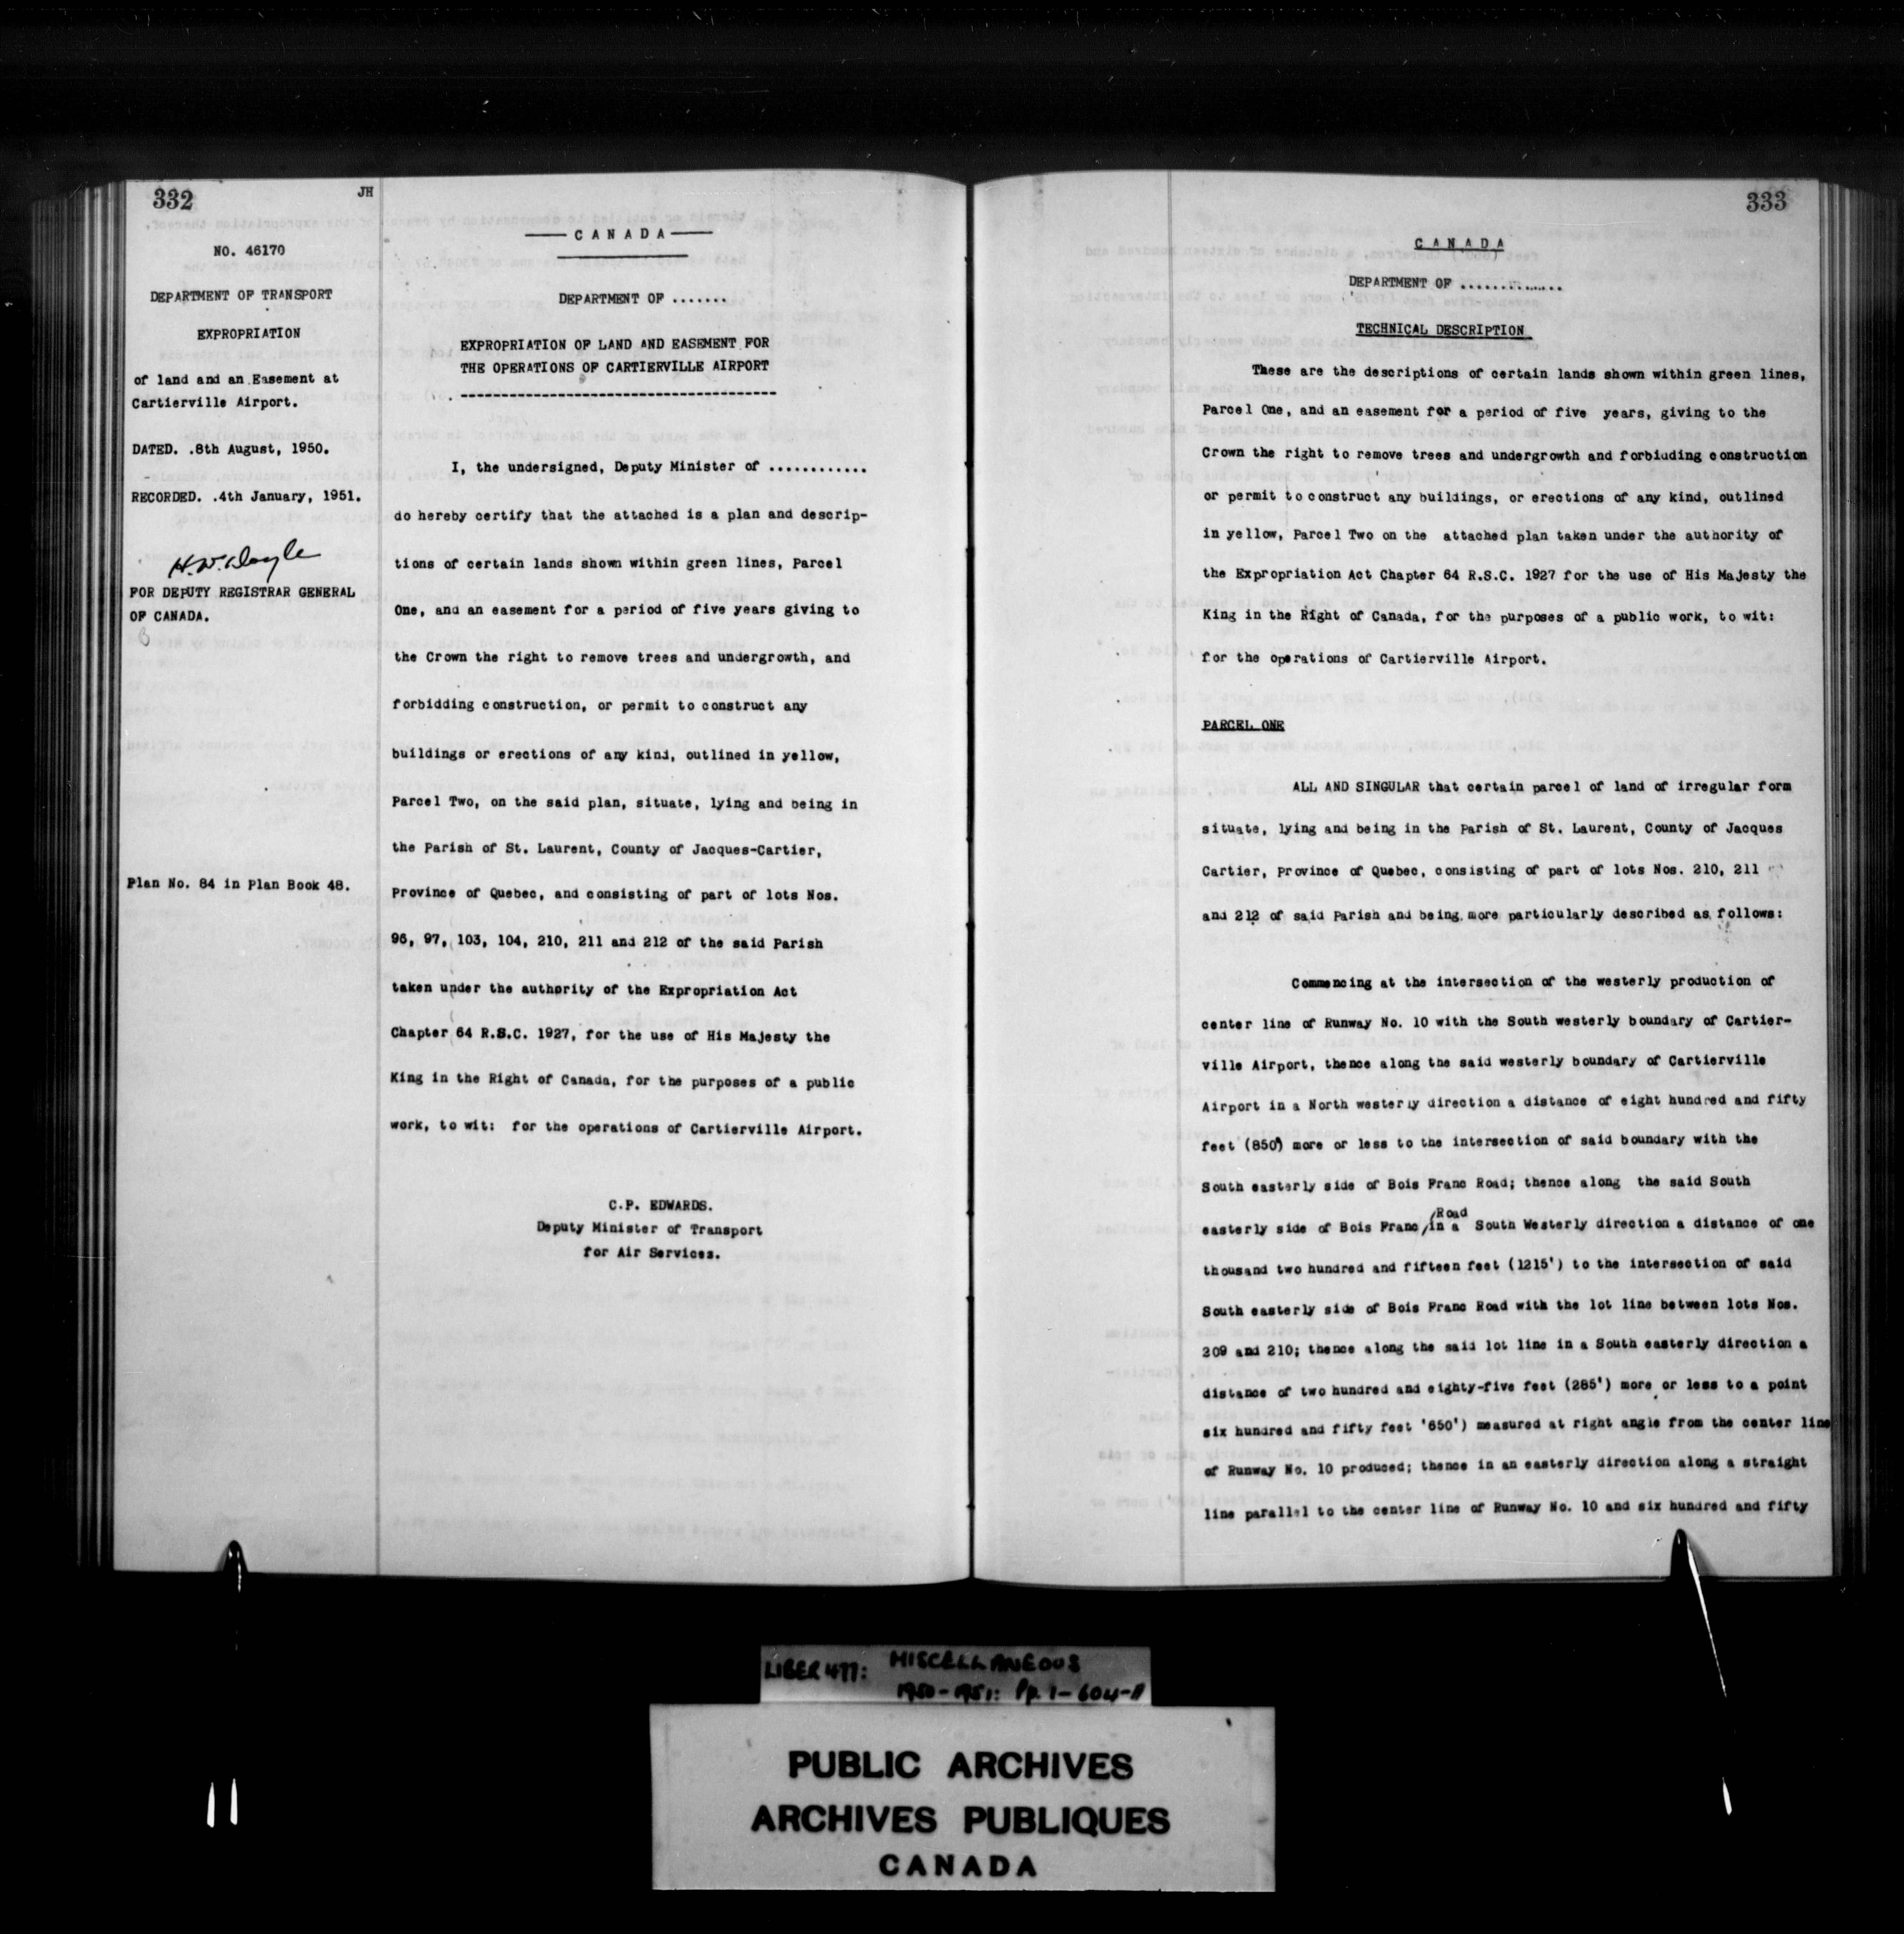 332
JH
NO. 46170
DEPARTMENT OF TRANSPORT
EXPROPRIATION
of land and an Easement at
Cartierville Airport.
DATED. .8th August, 1950.
RECORDED. .4th January, 1951.
H.W. Doyle
FOR DEPUTY REGISTRAR GENERAL
OF CANADA.
Plan No. 84 in Plan Book 48.
CANADA
DEPARTMENT OF .......
EXPROPRIATION OF LAND AND EASEMENT FOR
THE OPERATIONS OF CARTIERVILLE AIRPORT
I, the undersigned, Deputy Minister of ............
do hereby certify that the attached is a plan and descrip-
tions of certain lands shown within green lines, Parcel
One, and an easement for a period of five years giving to
the Crown the right to remove trees and undergrowth, and
forbidding construction, or permit to construct any
buildings or erections of any kind, outlined in yellow,
Parcel Two, on the said plan, situate, lying and being in
the Parish of St. Laurent, County of Jacques-Cartier,
Province of Quebec, and consisting of part of lots Nos.
96, 97, 103, 104, 210, 211 and 212 of the said Parish
taken under the authority of the Expropriation Act
Chapter 64 R.S.C. 1927, for the use of His Majesty the
King in the Right of Canada, for the purposes of a public
work, to wit: for the operations of Cartierville Airport.
C.P. EDWARDS.
Deputy Minister of Transport
for Air Services.
333
CANADA
DEPARTMENT OF ..............
TECHNICAL DESCRIPTION
These are the descriptions of certain lands shown within green lines,
Parcel One, and an easement for a period of five years, giving to the
Crown the right to remove trees and undergrowth and forbidding construction
or permit to construct any buildings, or erections of any kind, outlined
in yellow, Parcel Two on the attached plan taken under the authority of
the Expropriation Act Chapter 64 R.S.C. 1927 for the use of His Majesty the
King in the Right of Canada, for the purposes of a public work, to wit:
for the operations of Cartierville Airport.
PARCEL ONE
ALL AND SINGULAR that certain parcel of land of irregular form
situate, lying and being in the Parish of St. Laurent, County of Jacques
Cartier, Province of Quebec, consisting of part of lots Nos. 210, 211
and 212 of said Parish and being more particularly described as follows:
Commencing at the intersection of the westerly production of
center line of Runway No. 10 with the South westerly boundary of Cartier-
ville Airport, thence along the said westerly boundary of Cartierville
Airport in a North westerly direction a distance of eight hundred and fifty
feet (850') more or less to the intersection of said boundary with the
South easterly side of Bois Franc Road; thence along the said South
easterly side of Bois Franc/Road in a South Westerly direction a distance of one
thousand two hundred and fifteen feet (1215') to the intersection of said
South easterly side of Bois Franc Road with the lot line between lots Nos.
209 and 210; thence along the said lot line in a South easterly direction a
distance of two hundred and eighty-five feet (285') more or less to a point
six hundred and fifty feet '650') measured at right angle from the center line
of Runway No. 10 produced; thence in an easterly direction along a straight
line parallel to the center line of Runway No. 10 and six hundred and fifty
LIBER 477: MISCELLANEOUS
1950-1951: Pp. 1-604-A
PUBLIC ARCHIVES
ARCHIVES PUBLIQUES
CANADA